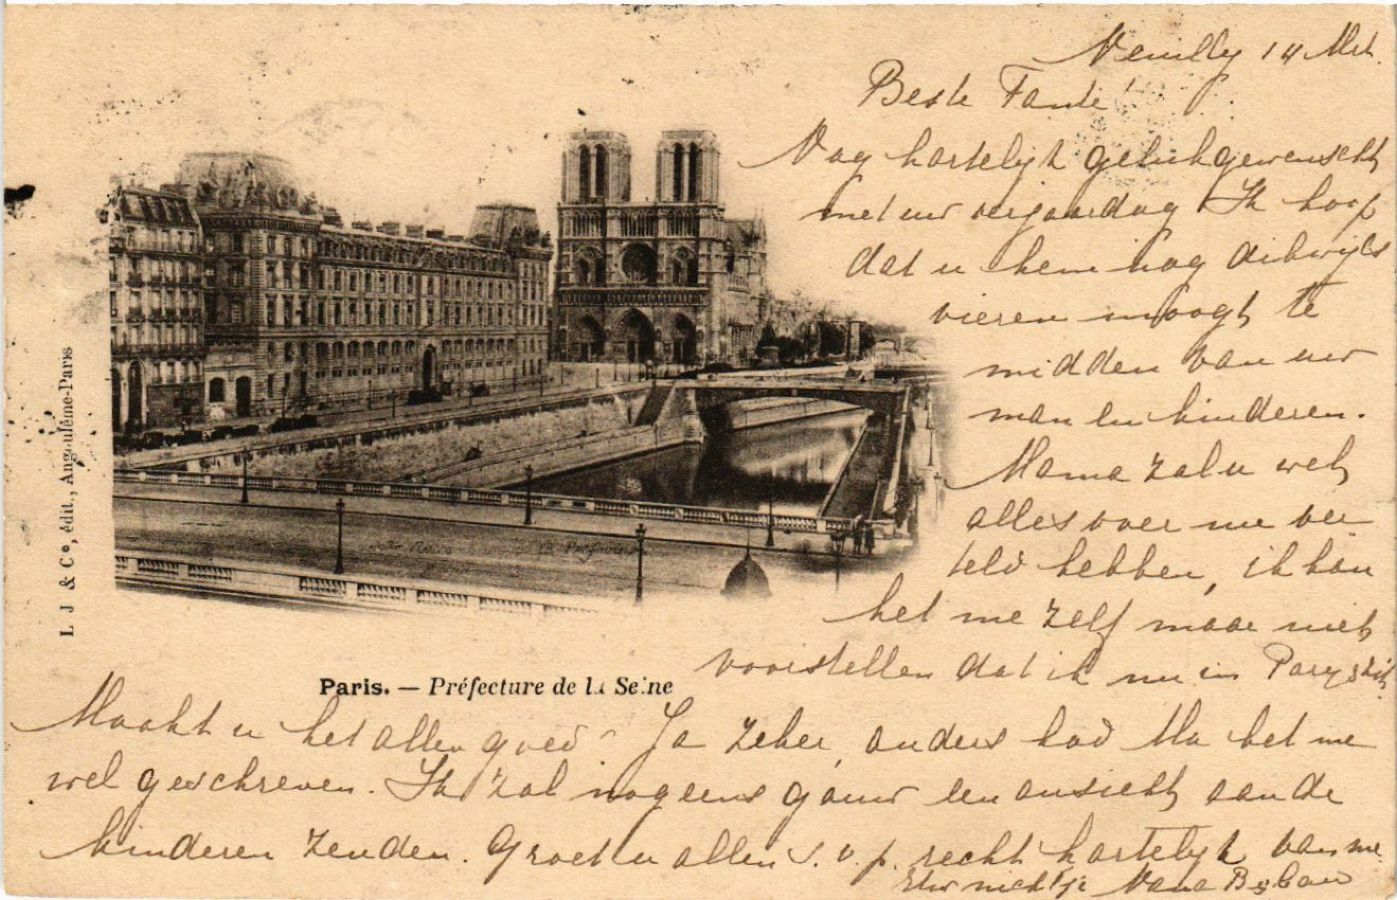 Neuilly 14 Mrt.
Beste Tante!
Nog hartelijk gelukgewenscht
met uw verjaardag Ik hoop
dat u hem nog dikwijls
vieren moogt te
midden van uw
man en kinderen.
Mama zal u wel
alles over me ver
teld hebben, ik kan
het me zelf maar niet
voorstellen dat ik nu in Parys zit.
Maakt u het allen goed? Ja zeker, anders had Ma het me
wel geschreven. Ik zal nog eens gauw een ansicht aan de
kinderen zenden. Groet u allen s.v.p. recht hartelijk van me.
Uw nichtje
Paris. — Préfecture de la Seine
L J & Cº, édit., Angoulême-Paris